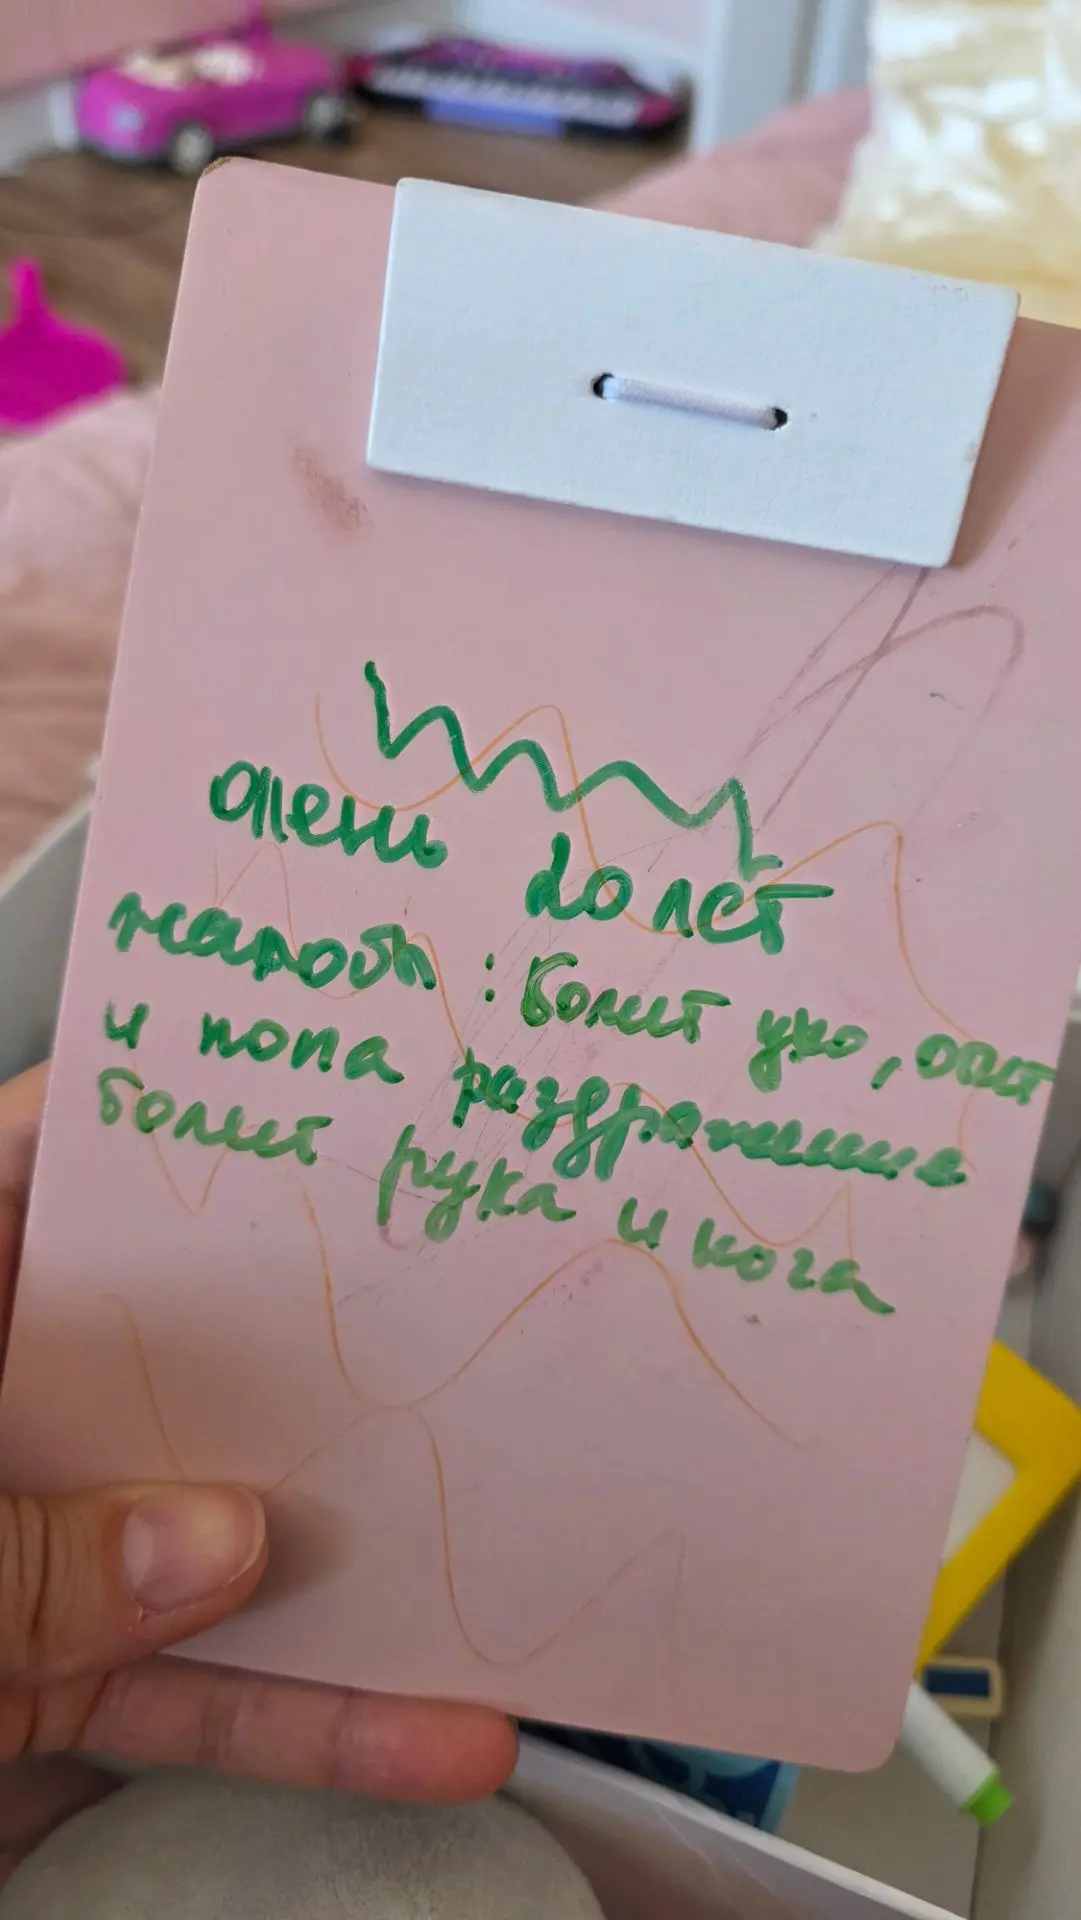 олень 20 лет
жалобы : болит ухо,
и попа раздражение
болит рука и нога